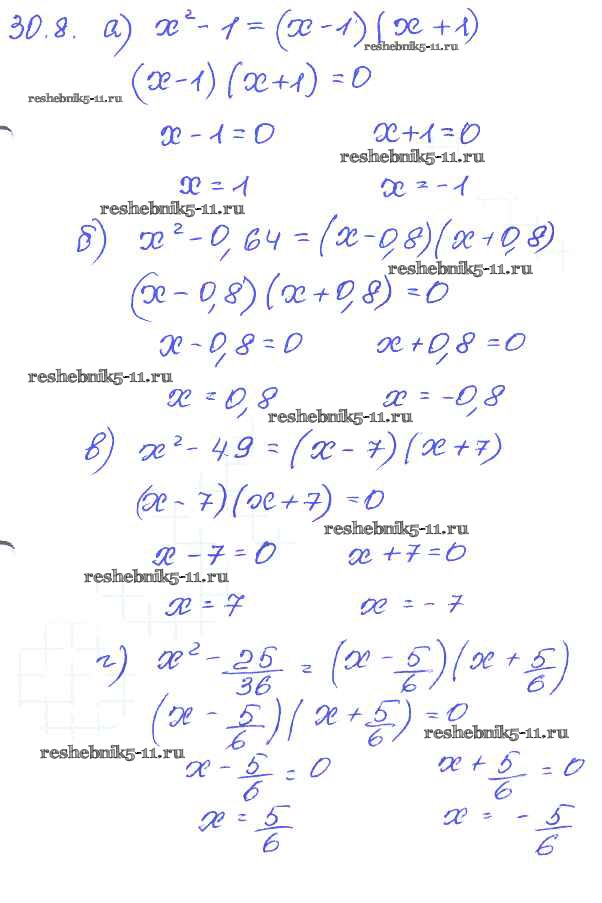 30.8. а) x² - 1 = (x - 1)(x + 1)
reshebnik5-11.ru
(x - 1)(x + 1) = 0
reshebnik5-11.ru
x - 1 = 0 x + 1 = 0
reshebnik5-11.ru
x = 1 x = -1
reshebnik5-11.ru
б) x² - 0,64 = (x - 0,8)(x + 0,8)
reshebnik5-11.ru
(x - 0,8)(x + 0,8) = 0
x - 0,8 = 0 x + 0,8 = 0
reshebnik5-11.ru
x = 0,8 x = -0,8
reshebnik5-11.ru
в) x² - 49 = (x - 7)(x + 7)
(x - 7)(x + 7) = 0
reshebnik5-11.ru
x - 7 = 0 x + 7 = 0
reshebnik5-11.ru
x = 7 x = -7
г) x² - 25/36 = (x - 5/6)(x + 5/6)
(x - 5/6)(x + 5/6) = 0
reshebnik5-11.ru
reshebnik5-11.ru
x - 5/6 = 0 x + 5/6 = 0
x = 5/6 x = - 5/6